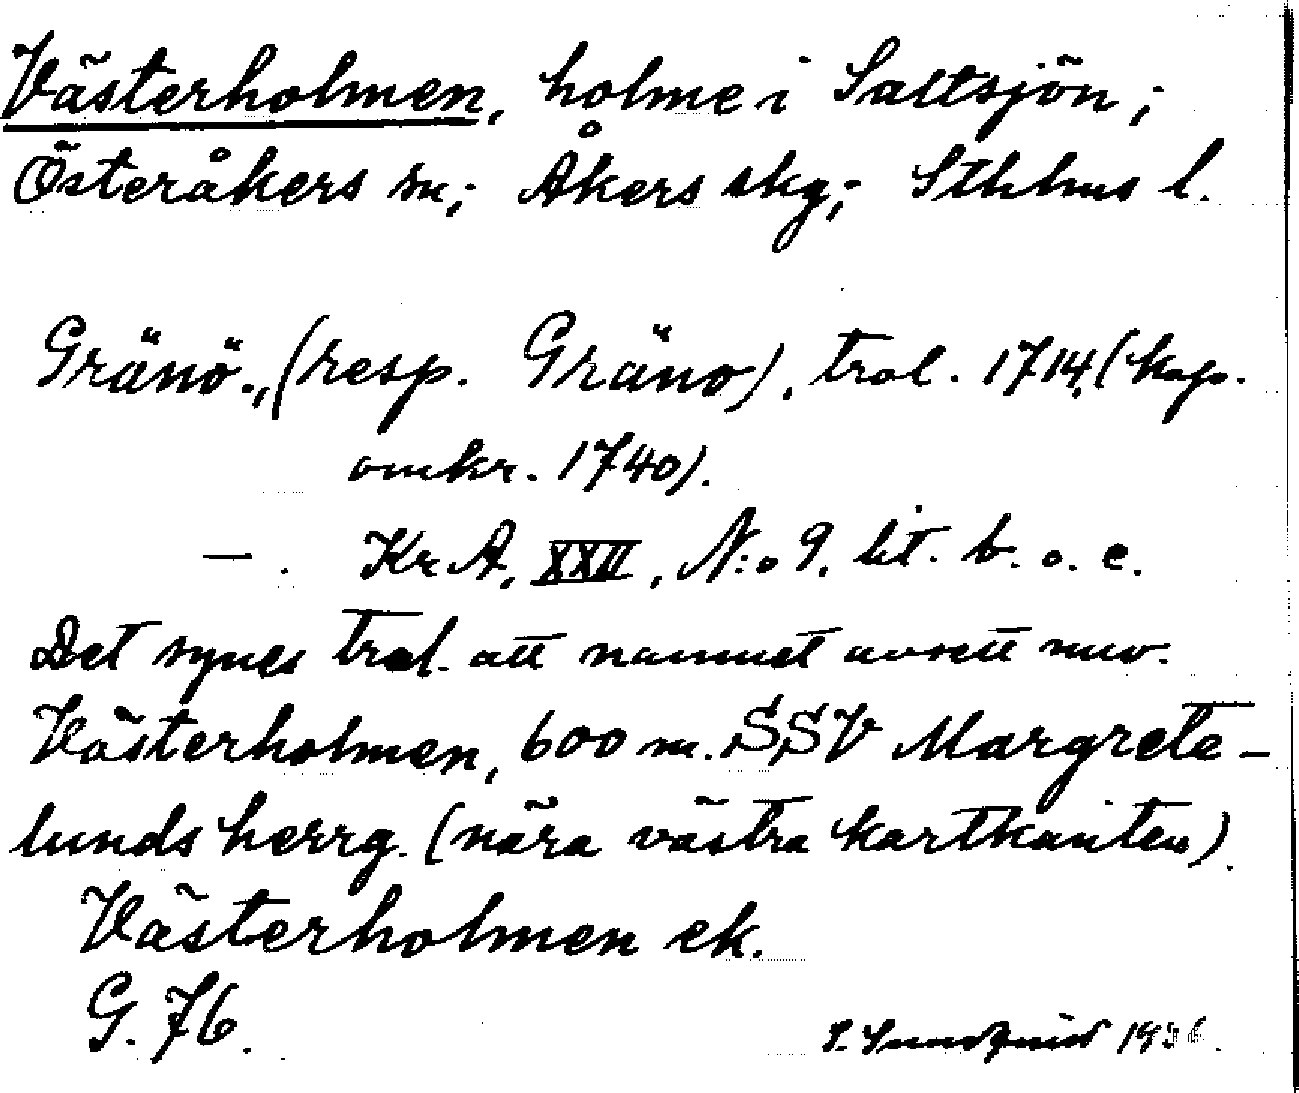 Västerholmen, holme i Saltsjön;
Österåkers sn; Åkers skg; Sthlms l.
Gränö., (resp. Gräno), trol. 1714, (kop.
omkr. 1740).
— . KrA, XXII, N:o 9, lit. b. o. c.
Det synes trol. att namnet avsett nuv.
Västerholmen, 600 m. SSV Margrete-
lunds herrg. (nära västra kartkanten).
Västerholmen ek.
G. 76.
S. Sundquist 19